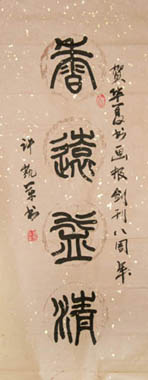 贺华夏书画报创刊八周年
香远益清
许凯军书